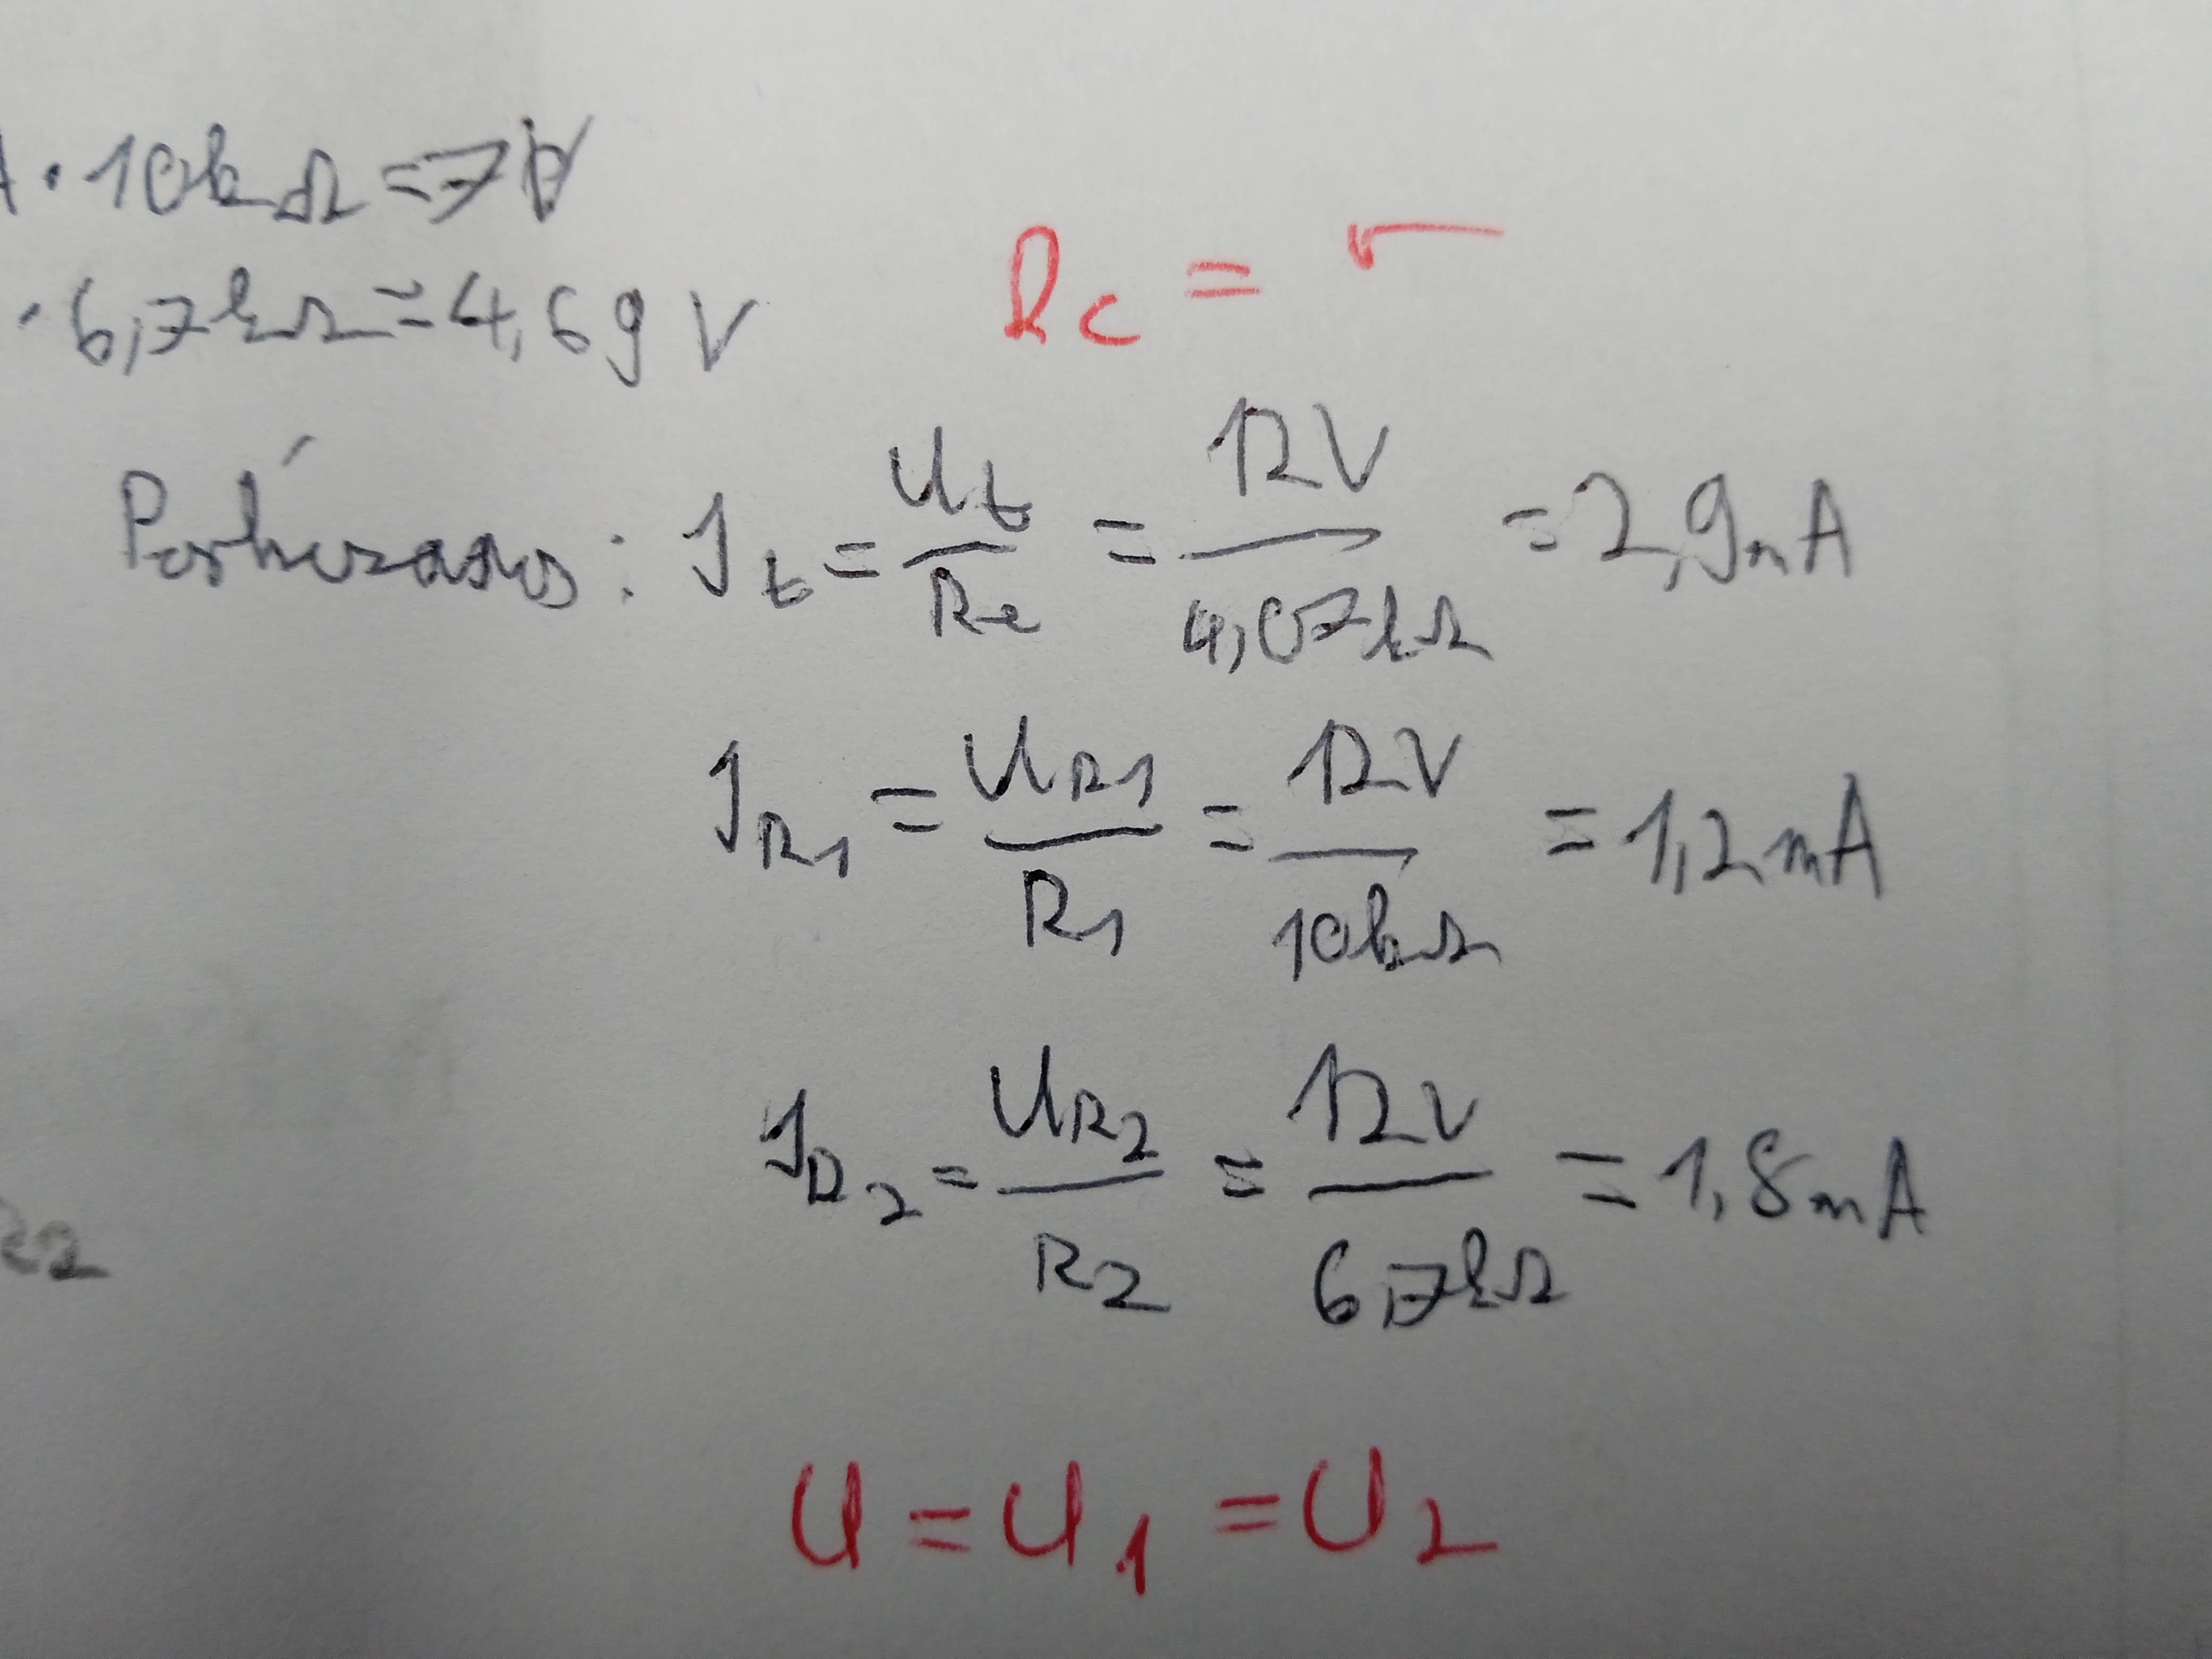 A · 10kΩ = 7V
· 6,7kΩ = 4,69 V
Rc = √
Párhuzamos: It = Ut / Re = 12V / 4,07kΩ = 2,9mA
IR1 = UR1 / R1 = 12V / 10kΩ = 1,2mA
IR2 = UR2 / R2 = 12V / 6,7kΩ = 1,8mA
R2
U = U1 = U2